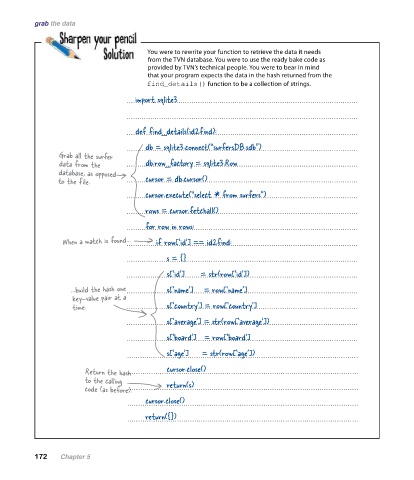 grab the data
Sharpen your pencil
Solution
You were to rewrite your function to retrieve the data it needs
from the TVN database. You were to use the ready bake code as
provided by TVN's technical people. You were to bear in mind
that your program expects the data in the hash returned from the
find_details() function to be a collection of strings.
import sqlite3
def find_details(id2find):
db = sqlite3.connect("surfersDB.sdb")
Grab all the surfer
data from the
database, as opposed
to the file.
db.row_factory = sqlite3.Row
cursor = db.cursor()
cursor.execute("select * from surfers")
rows = cursor.fetchall()
for row in rows:
When a match is found...
if row['id'] == id2find:
s = {}
s['id'] = str(row['id'])
...build the hash one
key-value pair at a
time.
s['name'] = row['name']
s['country'] = row['country']
s['average'] = str(row['average'])
s['board'] = row['board']
s['age'] = str(row['age'])
Return the hash
to the calling
code (as before).
cursor.close()
return(s)
cursor.close()
return({})
172 Chapter 5